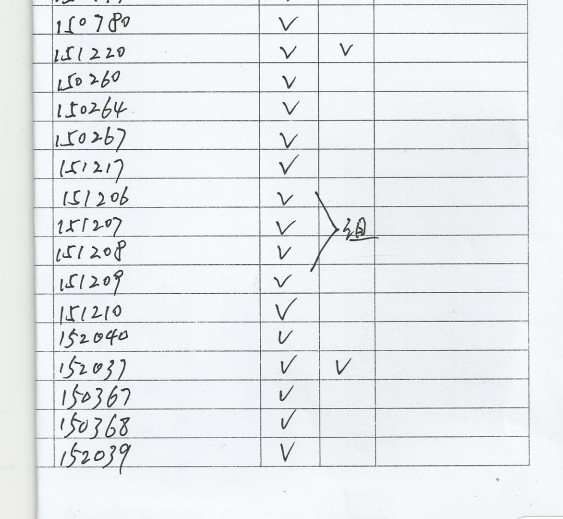 150780 ✓
151220 ✓ ✓
150260 ✓
150264 ✓
150267 ✓
151217 ✓
151206 ✓
151207 ✓
151208 ✓
151209 ✓
151210 ✓
152040 ✓
152037 ✓ ✓
150367 ✓
150368 ✓
152039 ✓